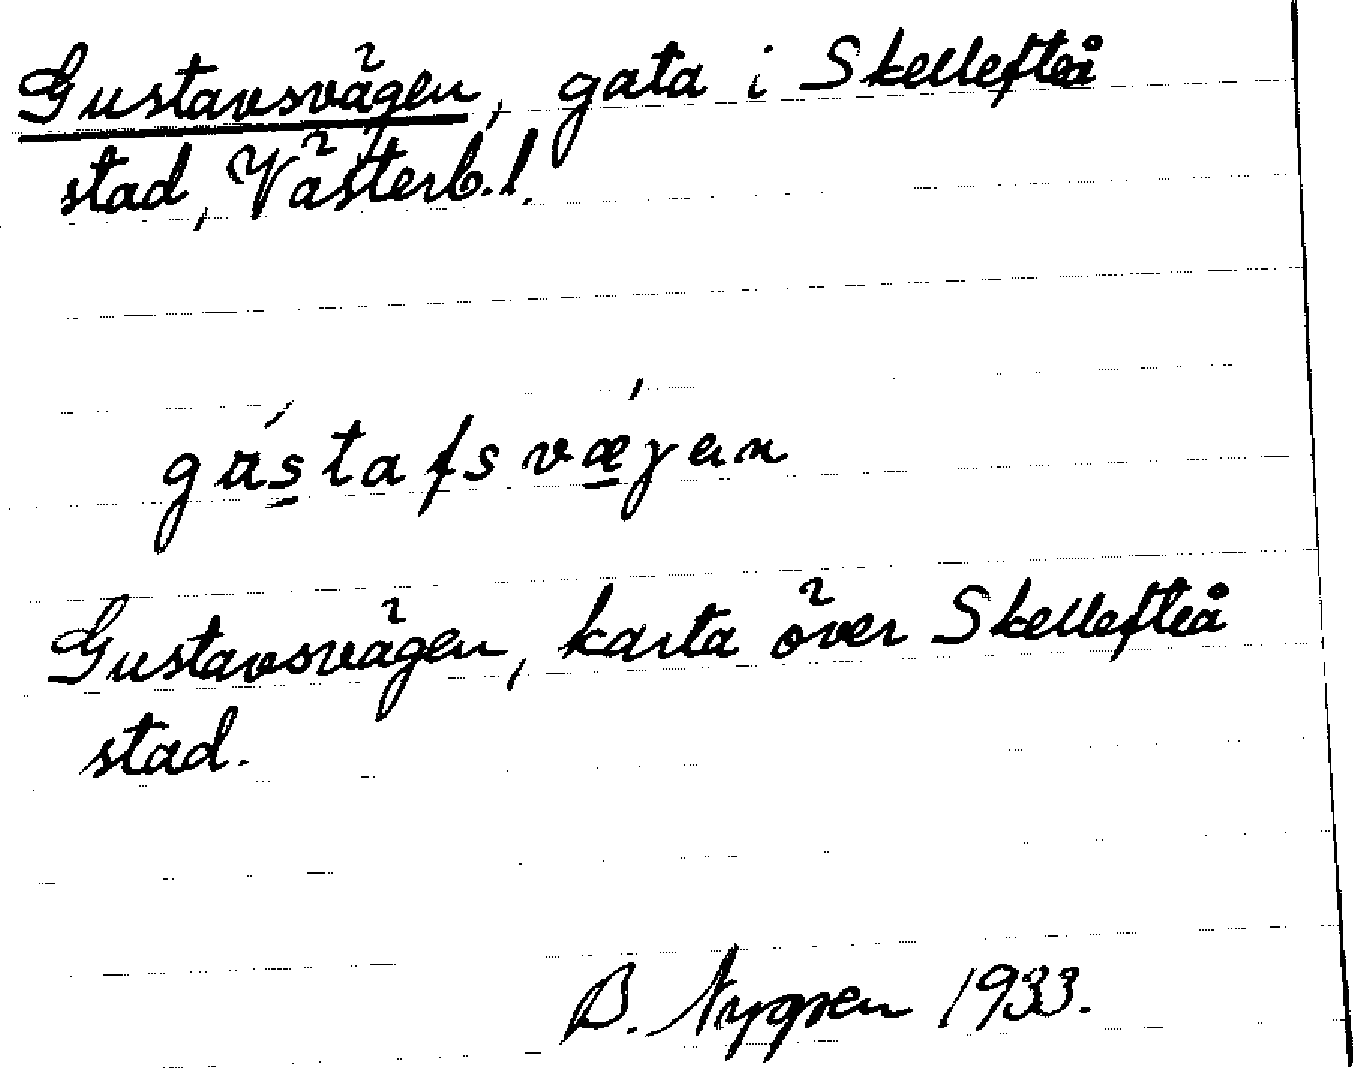 Gustavsvägen, gata i Skellefteå
stad, Västerb.l.
gu̇́s̲tafsvǽ̲γan
Gustavsvägen, karta över Skellefteå
stad.
B. Nygren 1933.